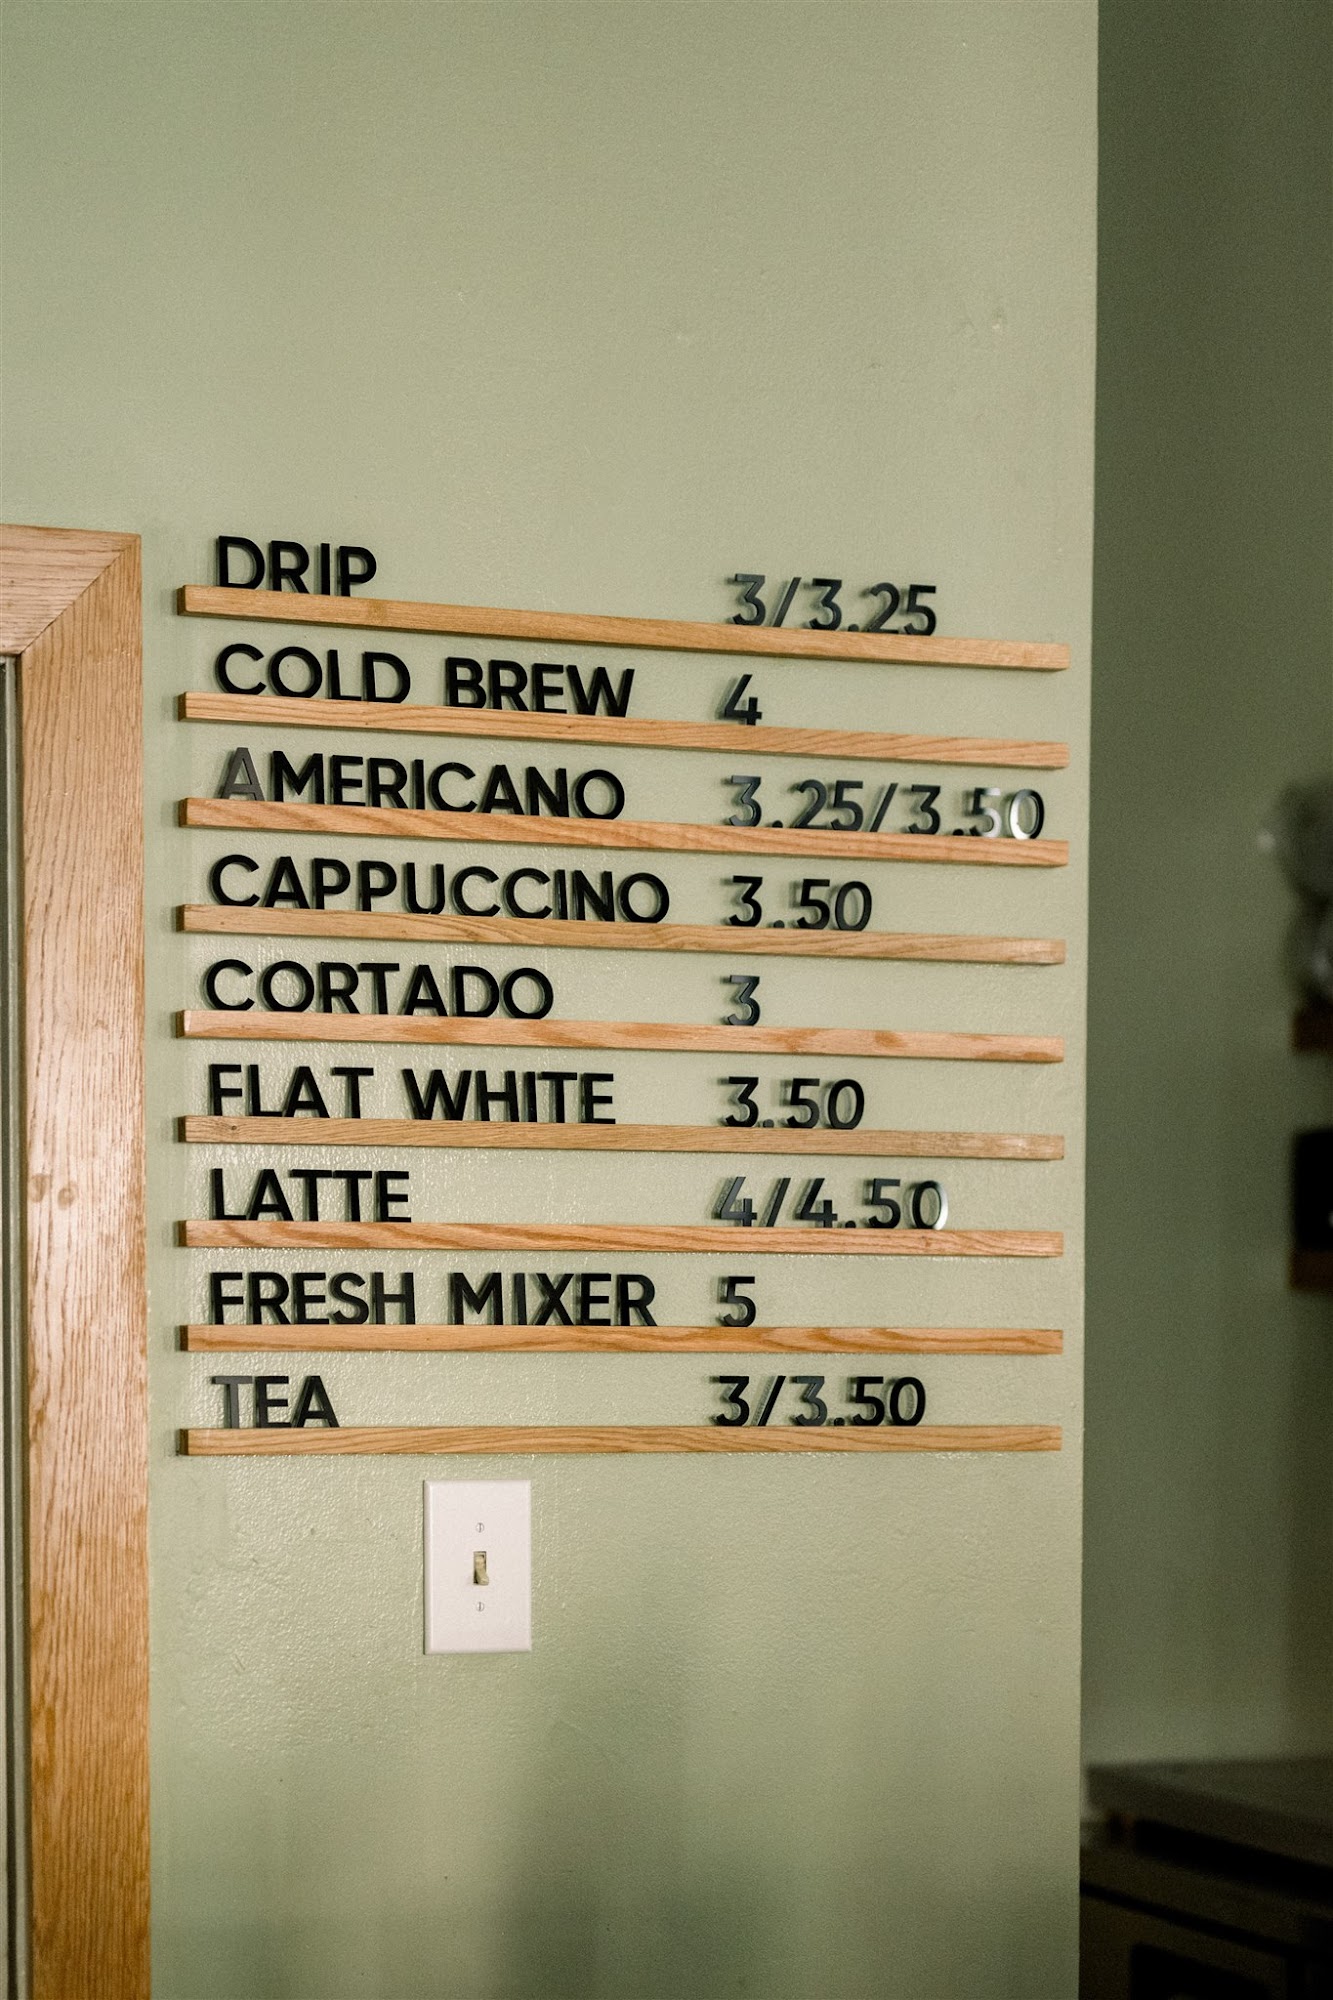 DRIP 3/3.25
COLD BREW 4
AMERICANO 3.25/3.50
CAPPUCCINO 3.50
CORTADO 3
FLAT WHITE 3.50
LATTE 4/4.50
FRESH MIXER 5
TEA 3/3.50